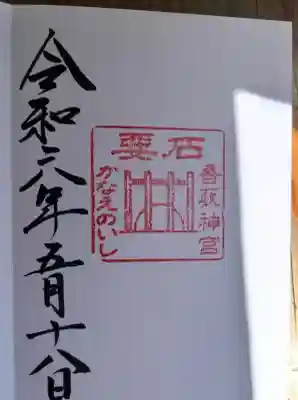 令和六年五月十八日
要石
香取神宮
かなえのいし